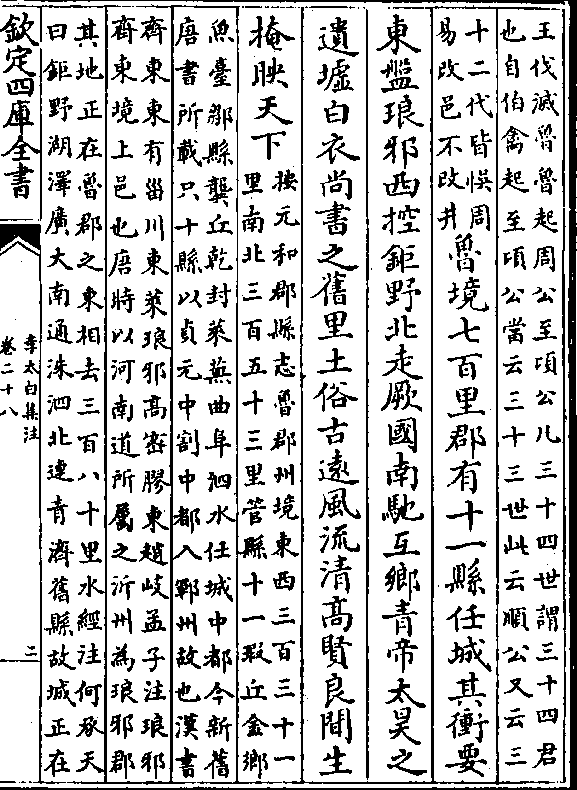 王伐滅魯魯起周公至頃公凡三十四世謂三十四君
也自伯禽起至頃公當云三十三世此云順公又云三
十二代皆悞周
易改邑不改井
魯境七百里郡有十一縣任城其衝要
東盤琅邪西控鉅野北走厥國南馳互鄉青帝太昊之
遺墟白衣尚書之舊里土俗古遠風流清高賢良間生
掩映天下
按元和郡縣志魯郡州境東西三百三十一
里南北三百五十三里管縣十一瑕丘金鄉
魚臺鄒縣龔丘乾封萊蕪曲阜泗水任城中都今新舊
唐書所載只十縣以貞元中割中都入鄆州故也漢書
齊東東有甾川東萊琅邪高密膠東趙岐孟子注琅邪
齊東境上邑也唐時以河南道所屬之沂州為琅邪郡
其地正在魯郡之東相去三百八十里水經注何承天
曰鉅野湖澤廣大南通洙泗北連青濟舊縣故城正在
欽定四庫全書
李太白集注
卷二十八
二